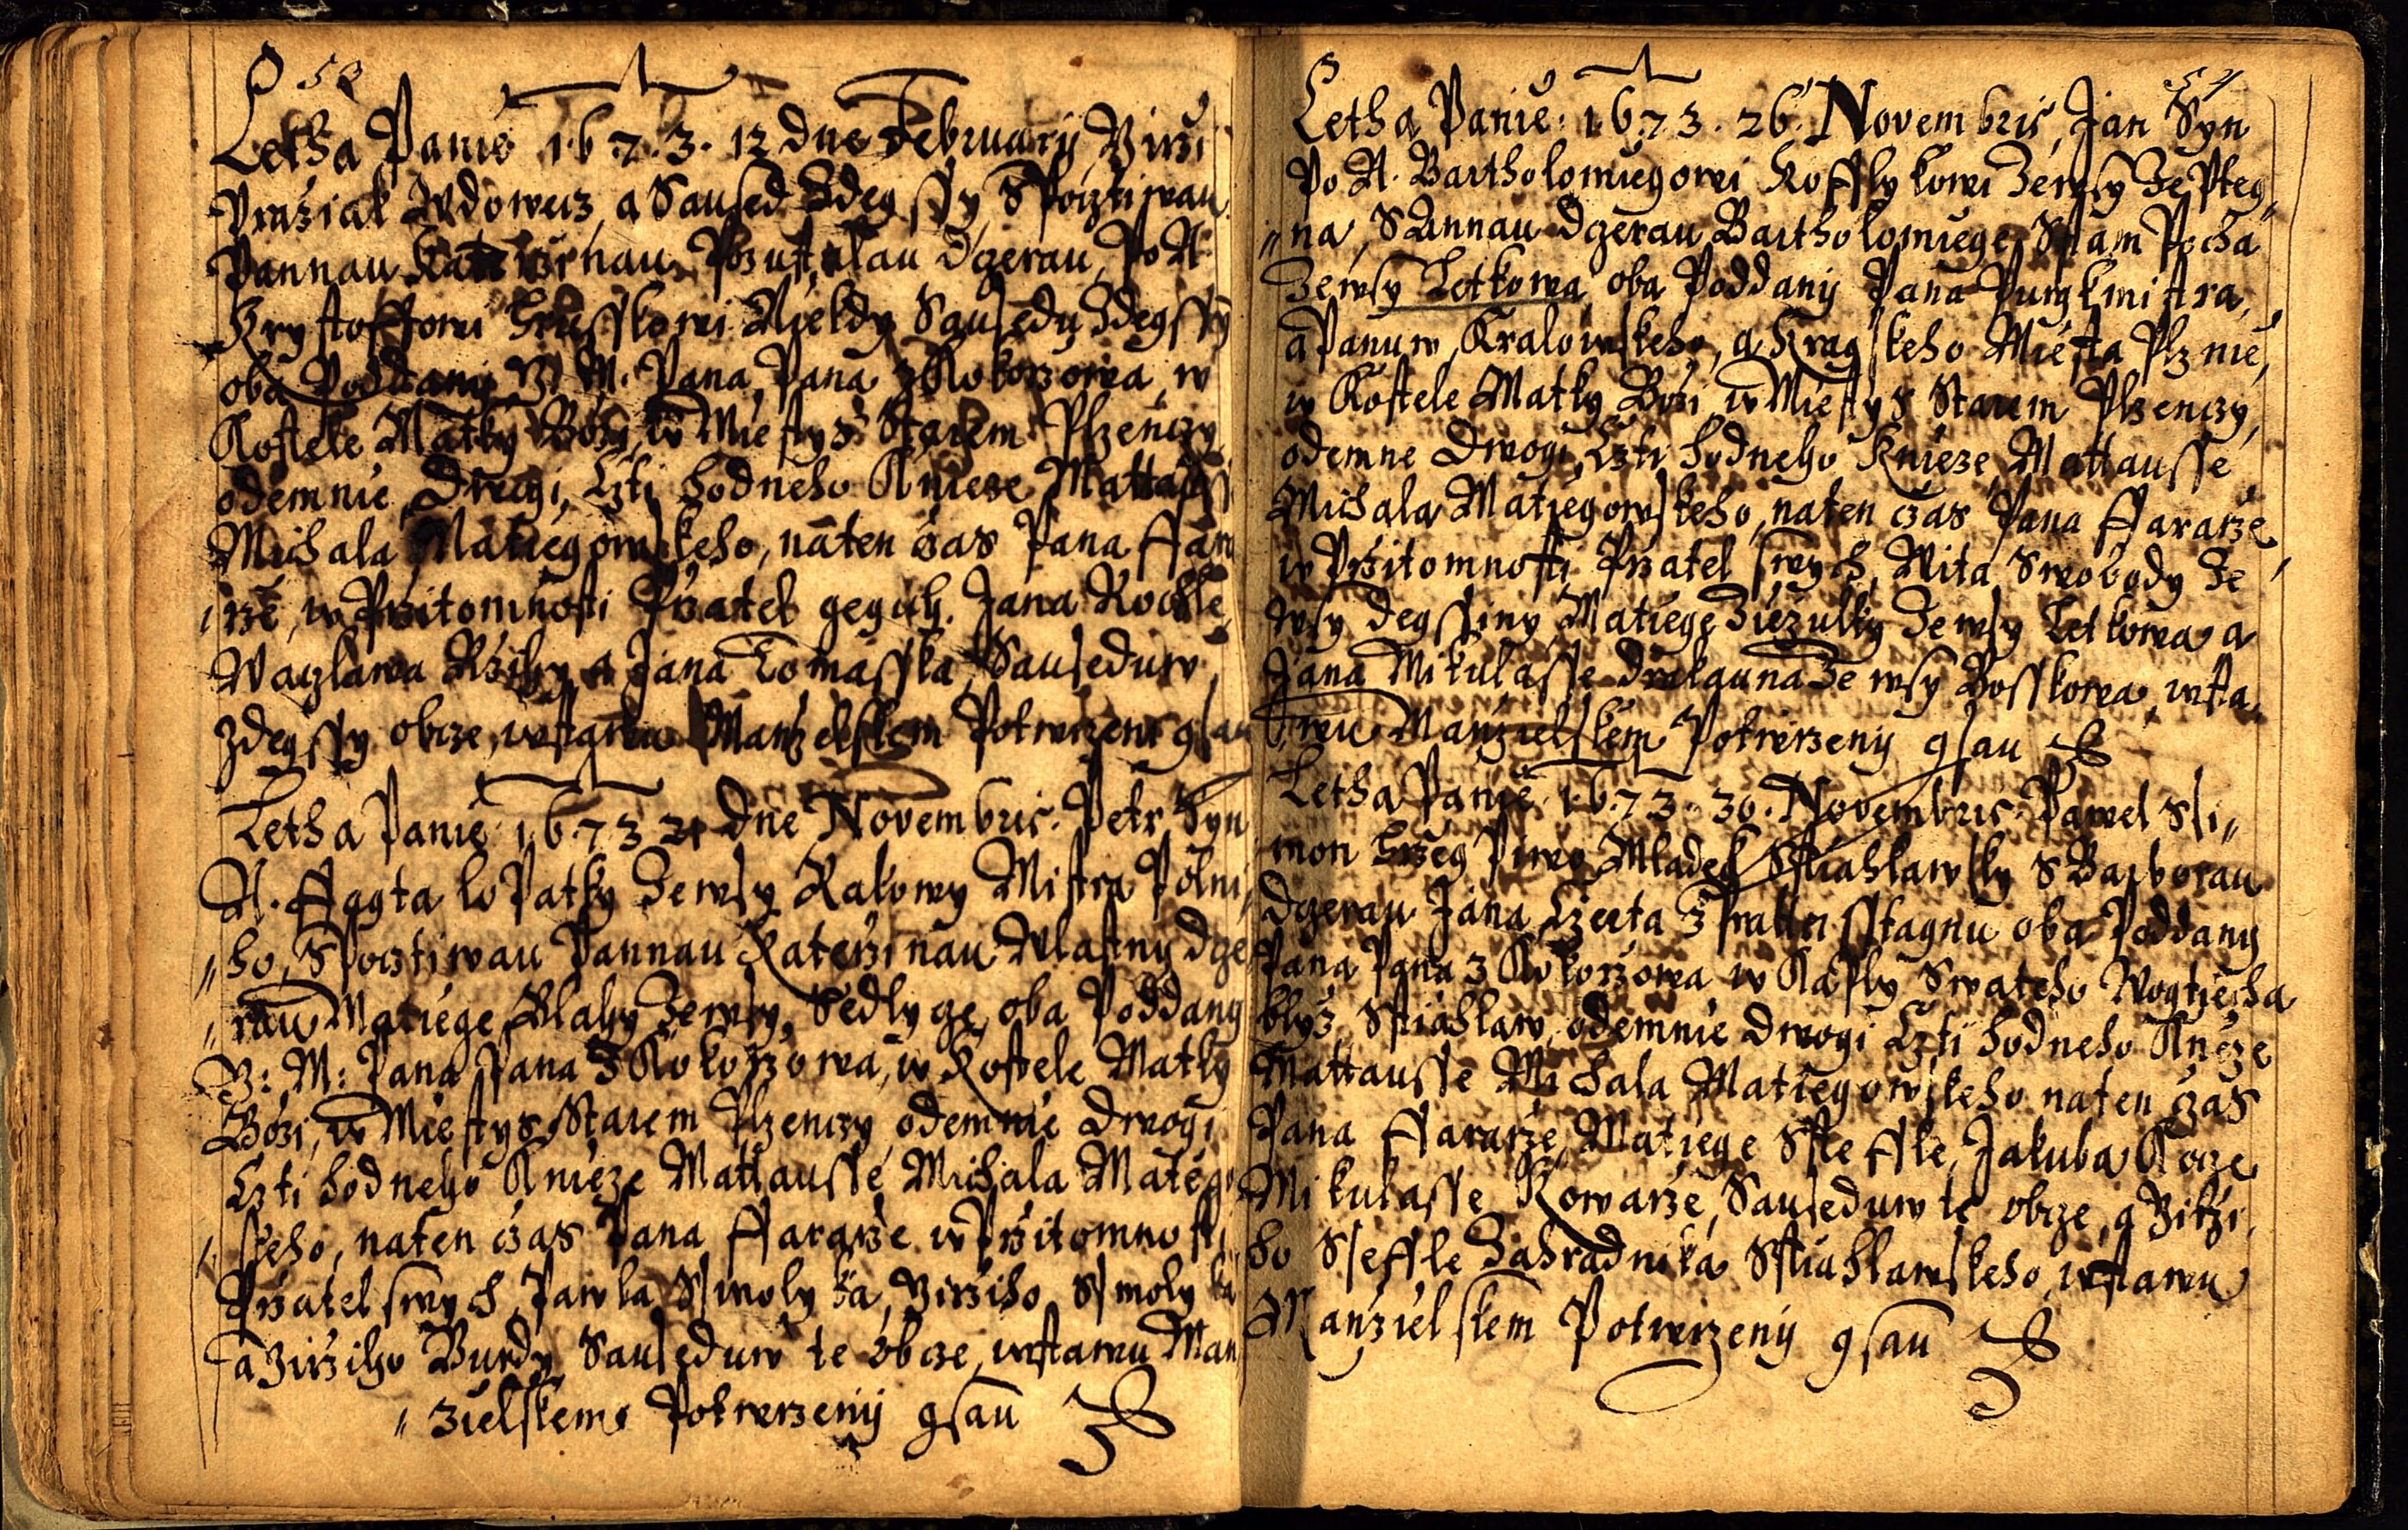 53
Letha Panie 1673. 12 dne February Birzi
Wdowecz, a Saused Zdegssy, S Pocztiwau
Pannau Katerzinau, Pozustalau Dczerau, Po N.
Krysstofforowi Niekdy Sausedu Zdegssy
oba Poddany W. M. Pana, Pana z Kokorzowa, w
Kostele Matky Bozy, w Miestys Starem Plzenczy
odemnie Dwogi Czti hodneho Knieze Mattausse
Michala Matiegowskeho, naten czas Pana ffara
rze, w Przitomnosti Przatel gegich. Jana
Waczlawa a Jana Tomasska, Sauseduw
Zdegssy obcze, w stawu Manzelskem Potwrzeni gsau
Letha Panie 1673 21 dne Novembris. Petr Syn
N. ffogta lo Patky Zewsy Rakowy Mistra Polni,
„ho, S Pocztiwau Pannau Katerzinau Wlastny dcze
„rau Matiege Blahy Zewsy, Sedlycze, oba Poddany
W: M: Pana Pana Z Kokorzowa, w Kostele Matky
Bozi, w Miestys Starem Plzenczy odemnie Dwogi
Czti hodneho Knieze Mattausse Michala Matego
skeho, naten czas Pana ffararze w Przitomnosti
Przatel swych, Pawla Smolyka, Birziho Smolyka
a Birziho Burdy, Sauseduw te obcze, w stawu Man
„zielskem Potwrzeny gsau
54
Letha Panie: 1673. 26. Novembris, Jan Syn
Po N. Bartholomiegowi Kofflykowi Zewsy Ze Pteg„
„na, S Annau Dczerau Bartholomiege Pocha
Zewsy Letkowa oba Poddany Pana Purgkmistra,
a Panuw, Kralowskeho, a Kragskeho Miesta Plznie,
w Kostele Matky Bozi w Miestys Starem Plzenczy,
odemne Dwogi, Czti hodneho Knieze, Mattausse
Michala Matiegowskeho, naten czas Pana ffararze,
w Przitomnosti, Przatel swych, Wita Swobody Ze
wsy Degssiny, Matiege Ziezulky Zewsy Letkowa a
Jana Mikulasse Zewsy Bosskowa, wsta,
wu Manzielskem Potwrzeny gsau
Letha Panie 1673. 30. Novembris. Pawel Si„
mon Mladek Sstiahlawsky S Barborau
Dczerau Jana oba Poddany
Pana Pana z Kokorzowa w Kaply Swateho Wogtiecha
blyz Sstiahlaw, odemnie Dwogi Czti hodneho Knieze
Mattausse Michala Matiegowskeho naten czas
Pana ffararze, Matiege Jakuba
Mikulasse Kowarze, Sauseduw te obcze, a Birzi,
ho Zahradnika Sstiahlawskeho, wstawu
Manzielskem Potwrzeny gsau